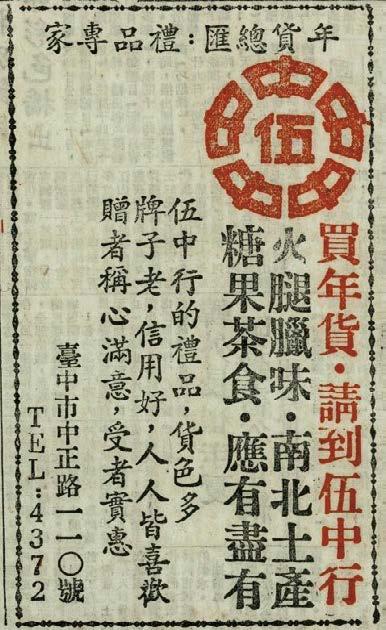 年貨總匯：禮品專家
中中中中中
伍
買年貨·請到伍中行
火腿臘味·南北土產
糖果茶食·應有盡有
伍中行的禮品，貨色多
牌子老，信用好，人人皆喜歡
贈者稱心滿意，受者實惠
臺中市中正路一一〇號
TEL:4372